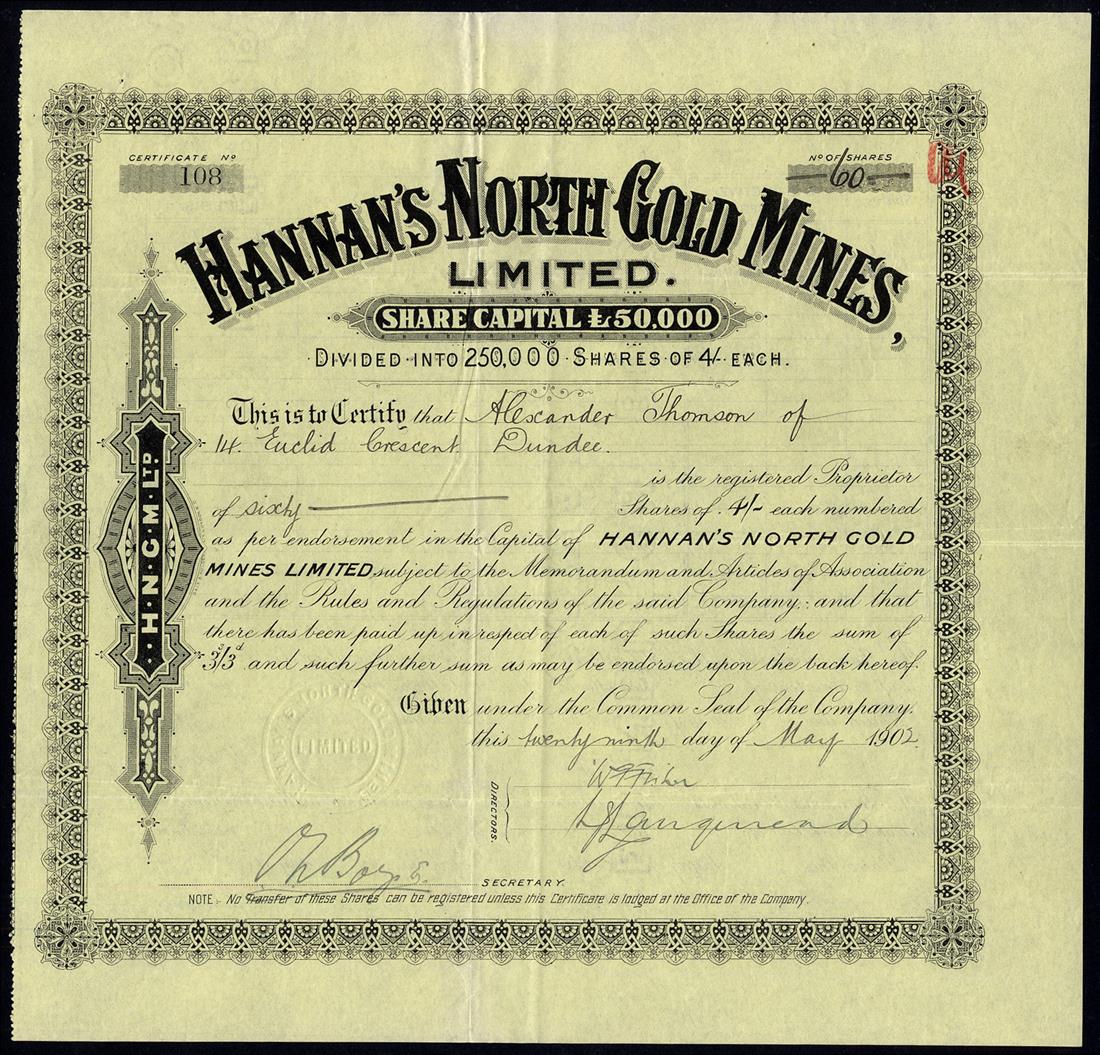 CERTIFICATE Nº
108
Nº OF SHARES
60
HANNAN'S NORTH GOLD MINES,
LIMITED.
SHARE CAPITAL £50,000
DIVIDED INTO 250,000 SHARES OF 4/- EACH.
This is to Certify that Alexander Thomson of
14. Euclid Crescent Dundee.
is the registered Proprietor
of sixty Shares of 4/- each numbered
as per endorsement in the Capital of HANNAN'S NORTH GOLD
MINES LIMITED subject to the Memorandum and Articles of Association
and the Rules and Regulations of the said Company; and that
there has been paid up in respect of each of such Shares the sum of
3s/3d and such further sum as may be endorsed upon the back hereof.
Given under the Common Seal of the Company,
this twenty ninth day of May 1902.
H·N·G·M·LTD.
LIMITED
DIRECTORS.
SECRETARY.
NOTE:- No Transfer of these Shares can be registered unless this Certificate is lodged at the Office of the Company.